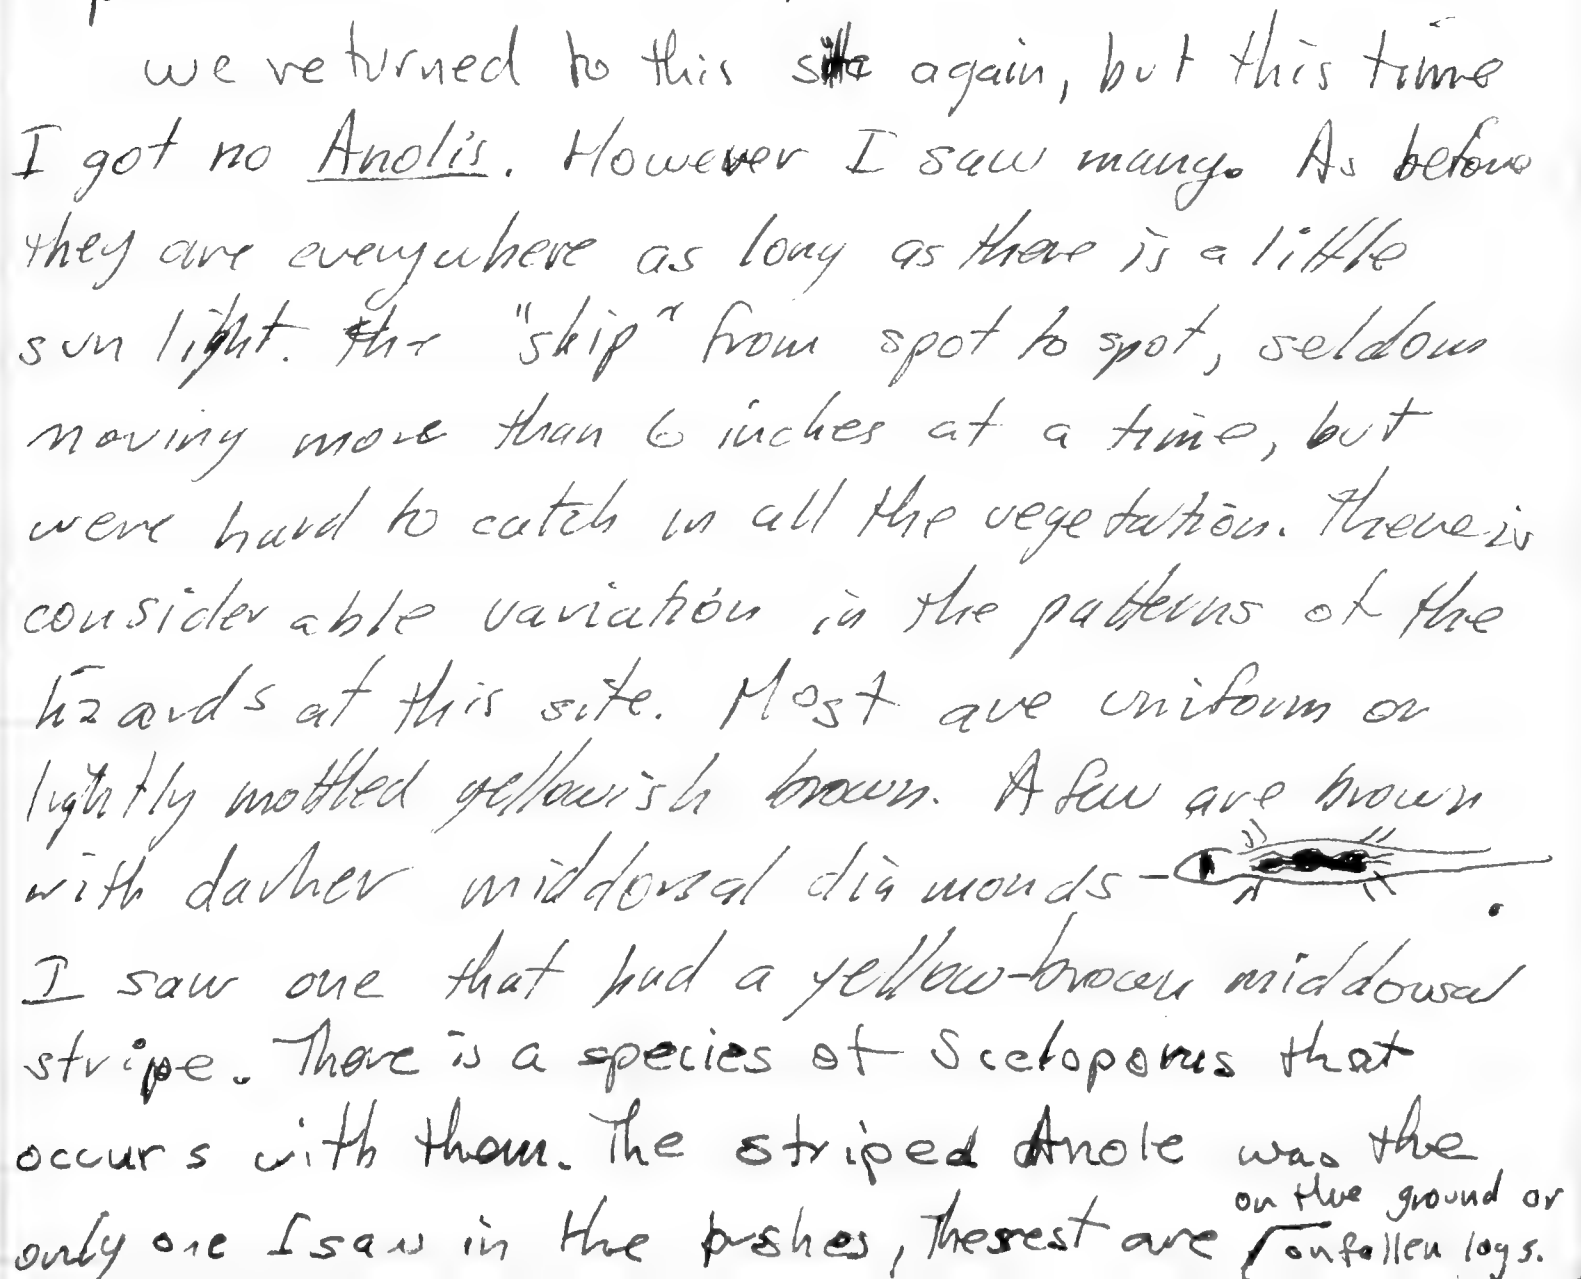 we returned to this site again, but this time
I got no Anolis. However I saw many. As before
they are everywhere as long as there is a little
sun light. the "skip" from spot to spot, seldom
moving more than 6 inches at a time, but
were hard to catch in all the vegetation. There is
considerable variation in the patterns of the
lizards at this site. Most are uniform or
lightly mottled yellowish brown. A few are brown
with darker middorsal diamonds - .
I saw one that had a yellow-brown middorsal
stripe. There is a species of Sceloporus that
occurs with them. The striped Anole was the
on the ground or
only one I saw in the bushes, The rest are on fallen logs.